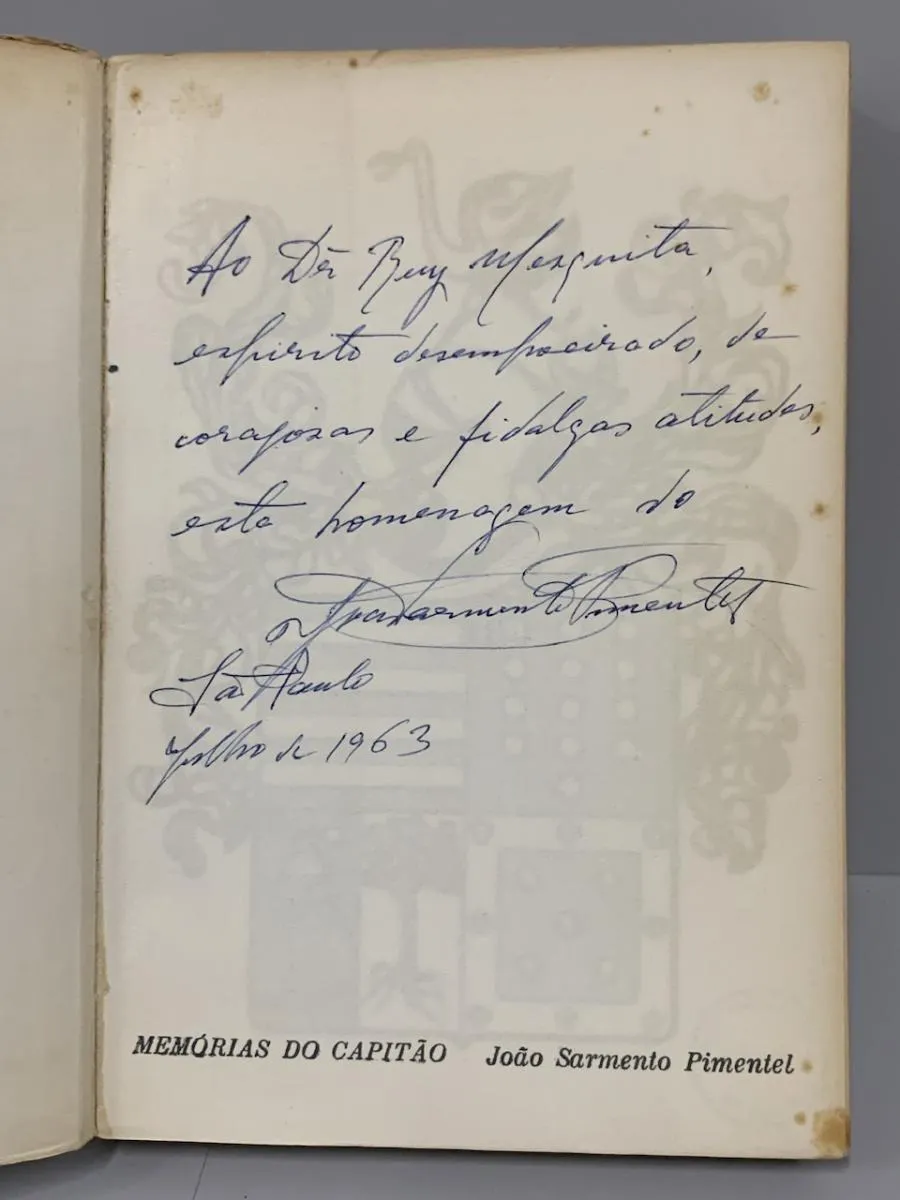 Ao Dr Ruy Mesquita,
espirito desempoeirado, de
corajosas e fidalgas atitudes,
esta homenagem do
João Sarmento Pimentel
São Paulo
Julho de 1963
MEMÓRIAS DO CAPITÃO João Sarmento Pimentel